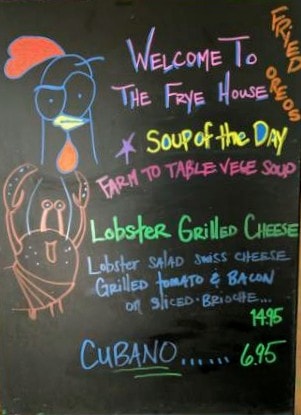 Welcome To
The Frye House
Fryed Oreos
Soup of the Day
Farm to Table Vege Soup
Lobster Grilled Cheese
Lobster Salad Swiss Cheese
Grilled tomato & Bacon
on Sliced Brioche...
14.95
Cubano...... 6.95